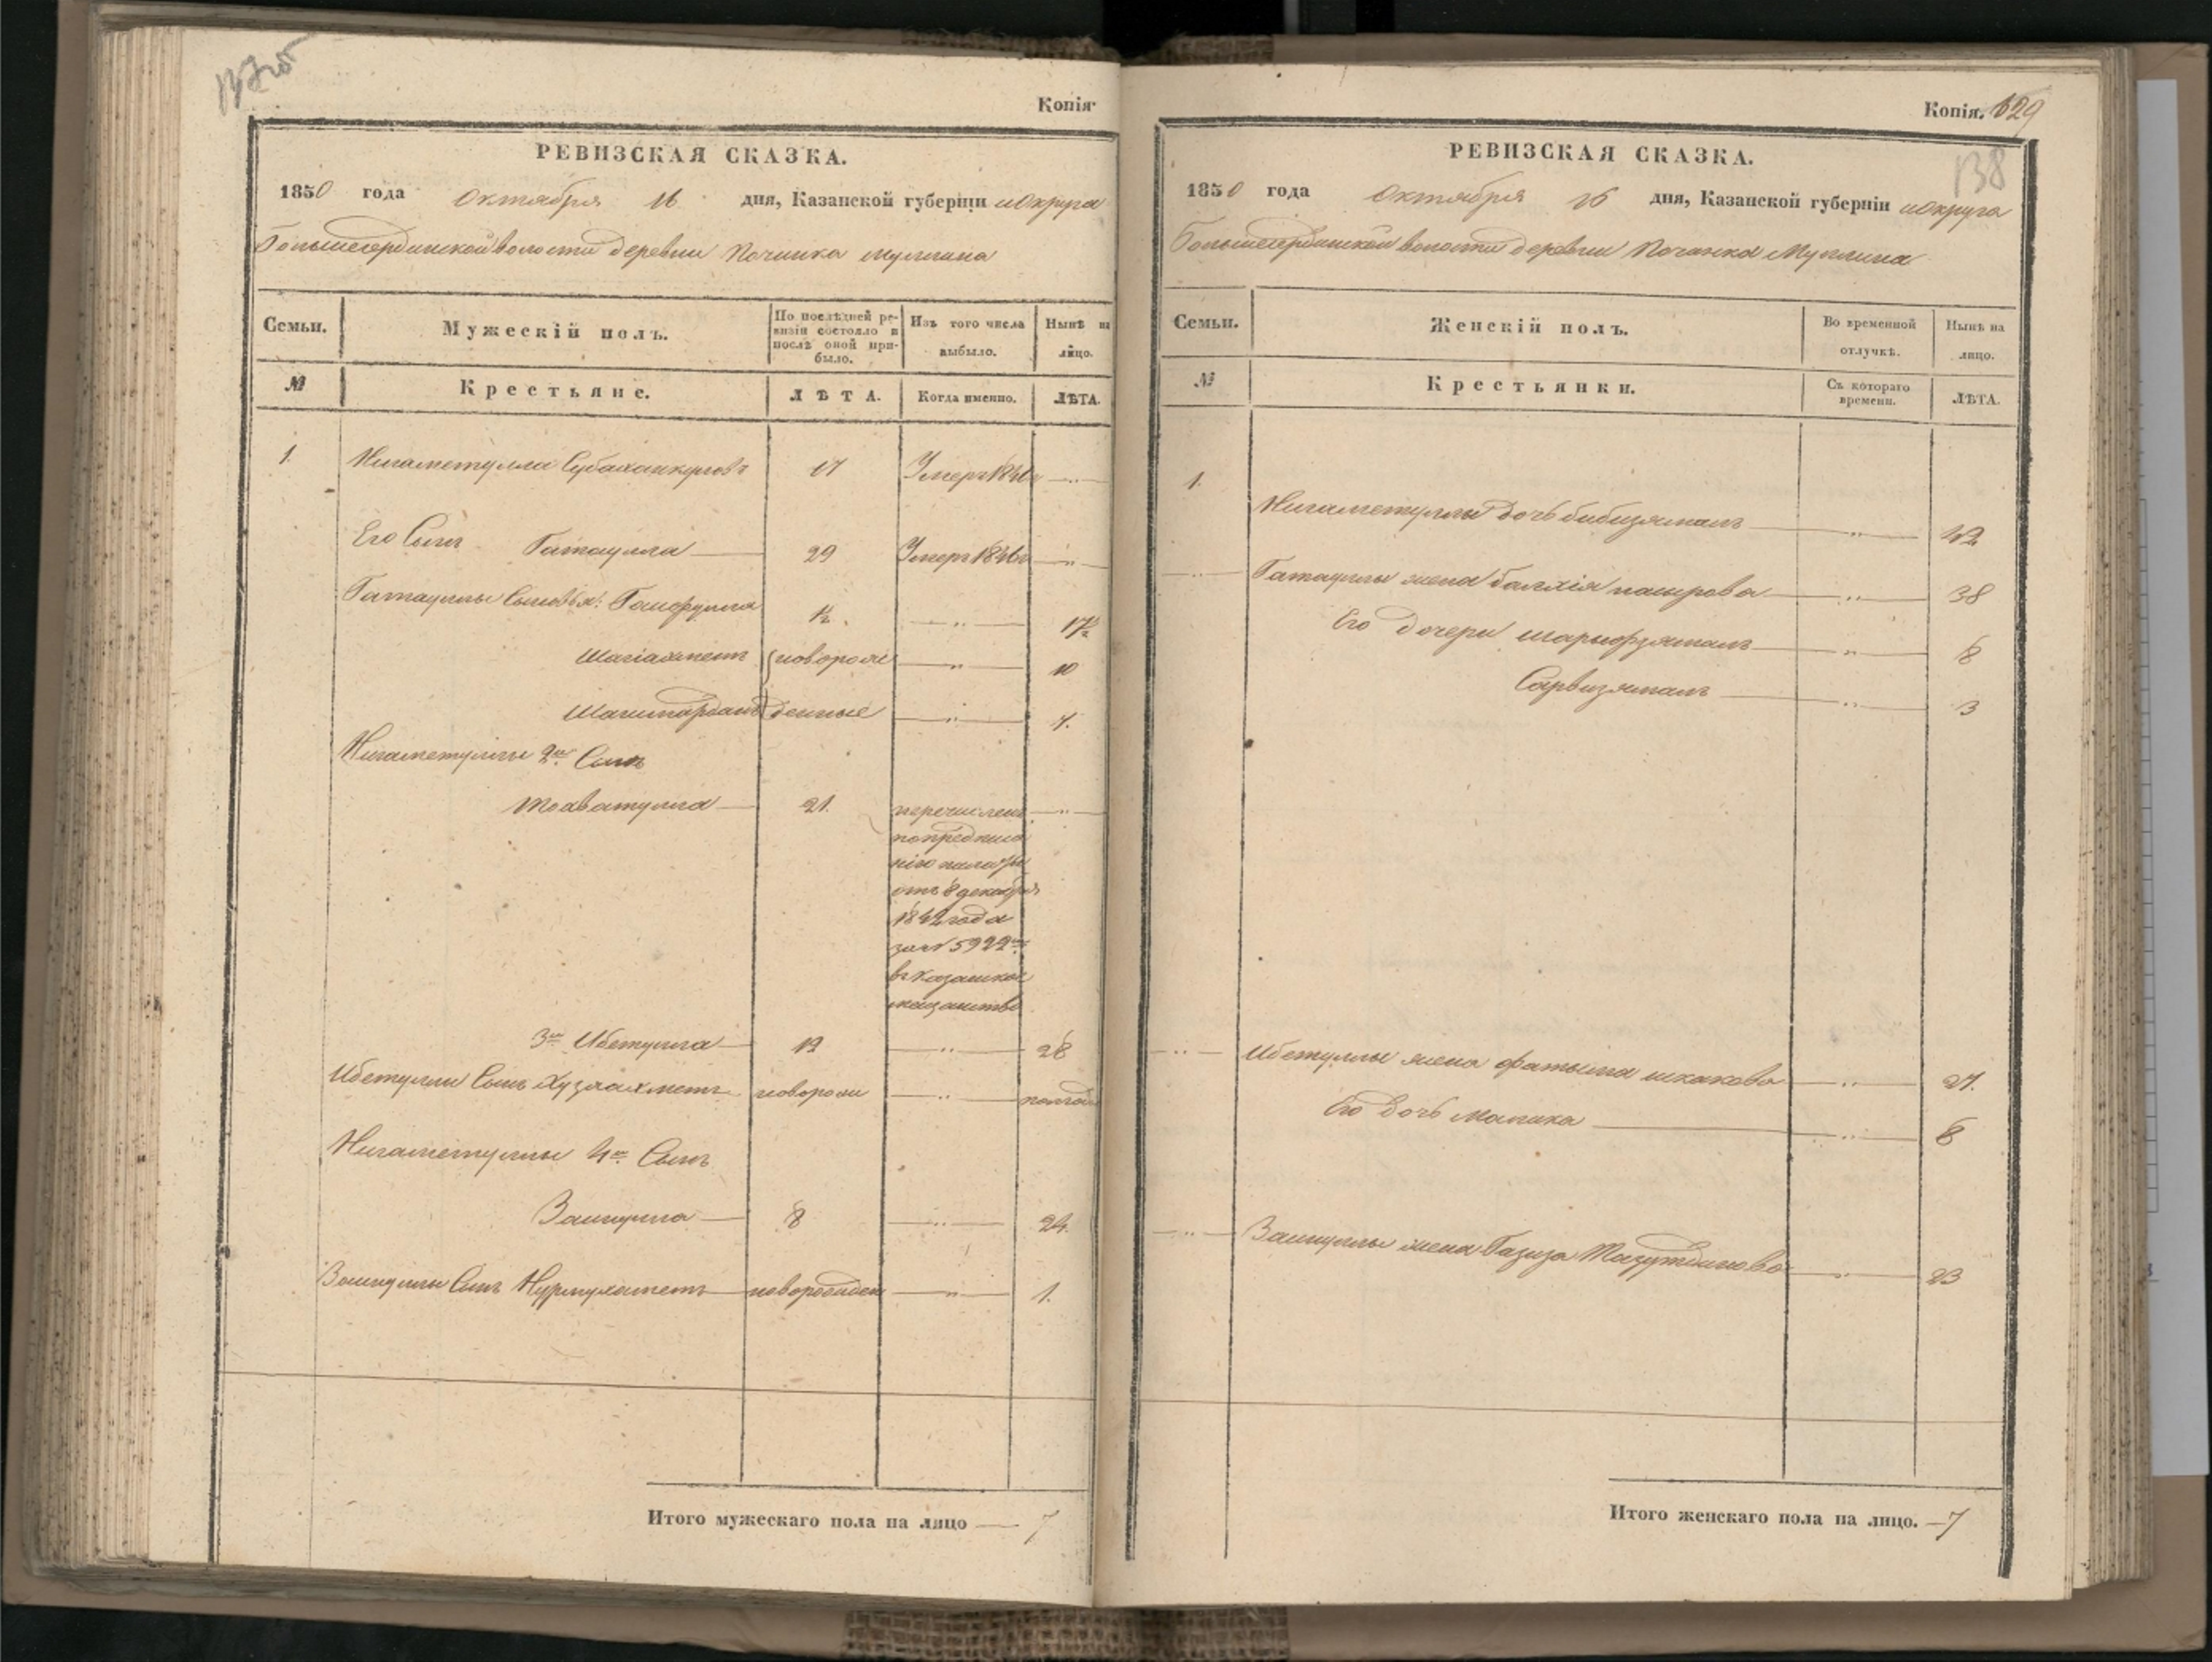 137об
Копія
РЕВИЗСКАЯ СКАЗКА.
1850 года октября 16 дня, Казанской губерніи и округа
Большесердинской волости деревни Починка Муллина
Семьи.
Мужескій полъ.
По послѣдней ре-
визіи состояло и
послѣ оной при-
было.
Изъ того числа
выбыло.
Нынѣ на
лицо.
№
Крестьяне.
ЛѢТА.
Когда именно.
ЛѢТА.
1.
Нигаметулла Субханкуловъ
Умеръ
Его Сынъ Гатаулла 29 Умеръ 1846г
Гатауллы Сыновья:
1½ 17½
Шагіахметъ новорож 10
Шагимарданъ денные
Нигаметуллы 2й Сынъ
21. перечисленъ
по предписа
нію палаты
отъ 8 декабря
1842 года
за № 5922м
въ Казанское
3й Ибетулла 28
Ибетуллы Сынъ Хузяахметъ новорож полгода
Нигаметуллы 4й Сынъ
8 24.
Сынъ Нурмухаметъ новорожден 1.
Итого мужескаго пола на лицо 7
Копія. 629
138
РЕВИЗСКАЯ СКАЗКА.
1850 года октября 16 дня, Казанской губерніи и округа
Большесердинской волости деревни Починка Муллина
Семьи.
Женскій полъ.
Во временной
отлучкѣ.
Нынѣ на
лицо.
№
Крестьянки.
Съ котораго
времени.
ЛѢТА.
1.
Нигаметуллы дочь Бибизямалъ
Гатауллы жена 38
Его дочери Шарифзямалъ 8
Сарвизямалъ 3
Ибетуллы жена Фатыма 27.
Его дочь Малика 8
жена Газиза 23
Итого женскаго пола на лицо. 7